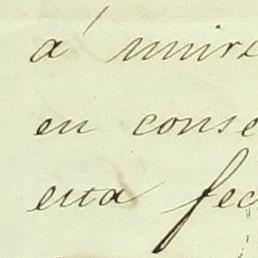 á unire
en conse
esta fec